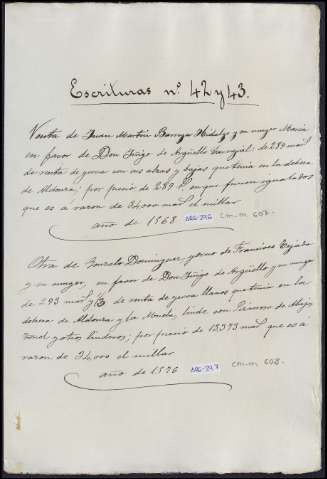 Escrituras nº 42 y 43.
Venta de Juan Martín Hidalgo y su muger María
en favor de Don Iñigo de Argüello Carvajal: de 289 mrs
de renta de yerva con sus altas y bajas que tenía en la dehesa
de Aldeura; por precio de 289 en que fueron igualados
que es á razon de 34,000 mrs el millar
año de 1568 AAG-296 CM.M. 608-
Otra de Gonzalo Dominguez, yerno de Francisco
y su muger, en favor de Don Iñigo de Argüello y su muger
de 293 mrs y de renta de yerva llanos que tenía en la
dehesa de Aldeura y la linde con
y otros linderos; por precio de 13,373 mrs que es á
razon de 34,000 el millar
año de 1576 AAG-297 CM.M 608-